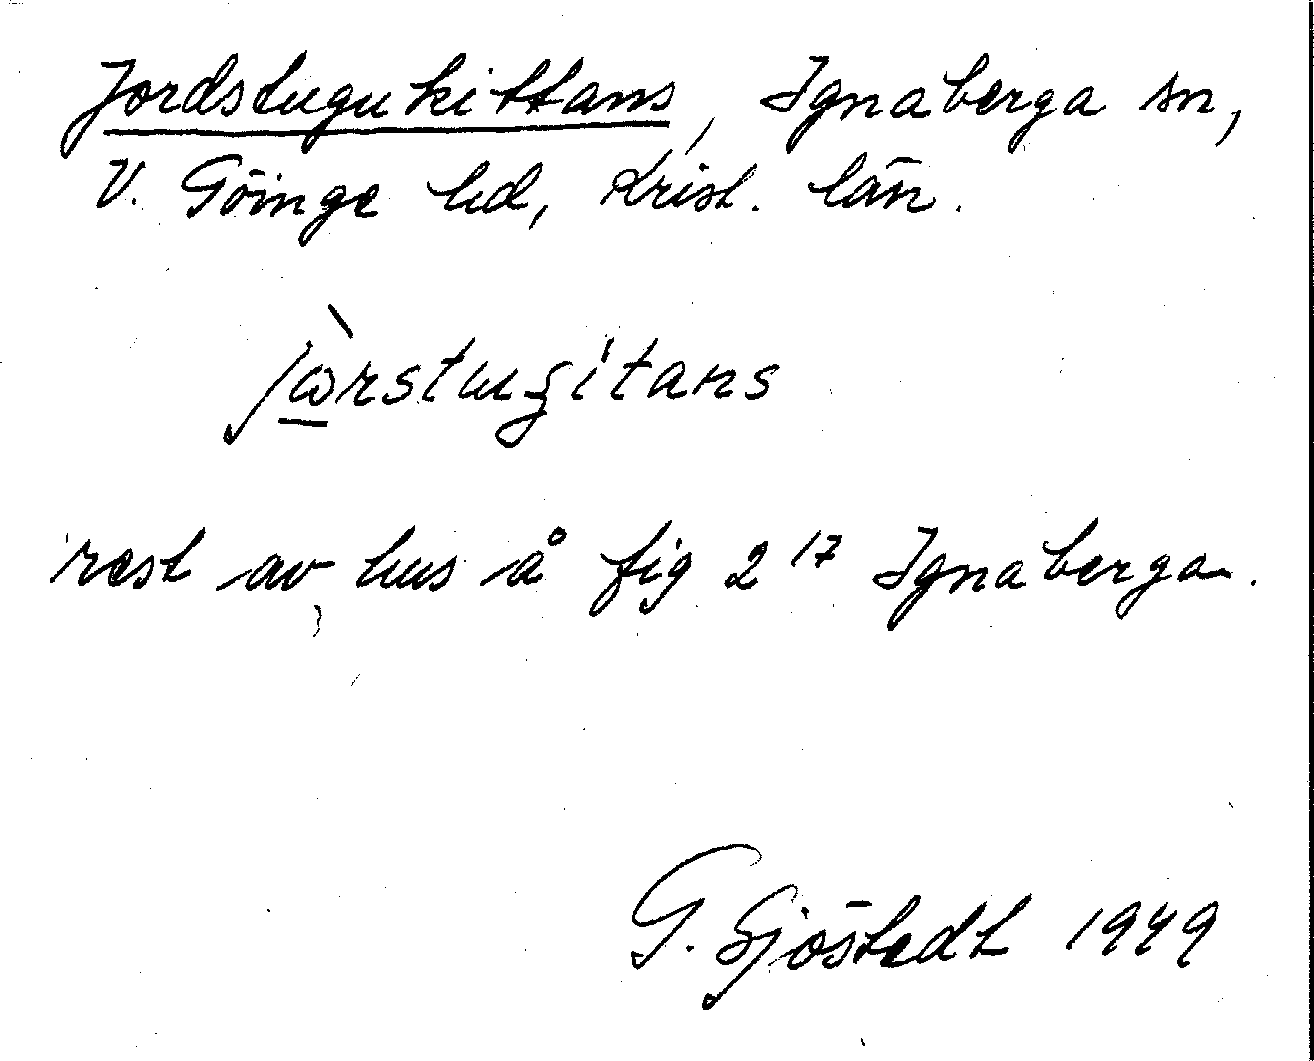 Jordstugukittans, Ignaberga sn,
V. Göinge hd, Krist. län.
rest av hus å fig 2 17 Ignaberga.
G. Sjöstedt 1949